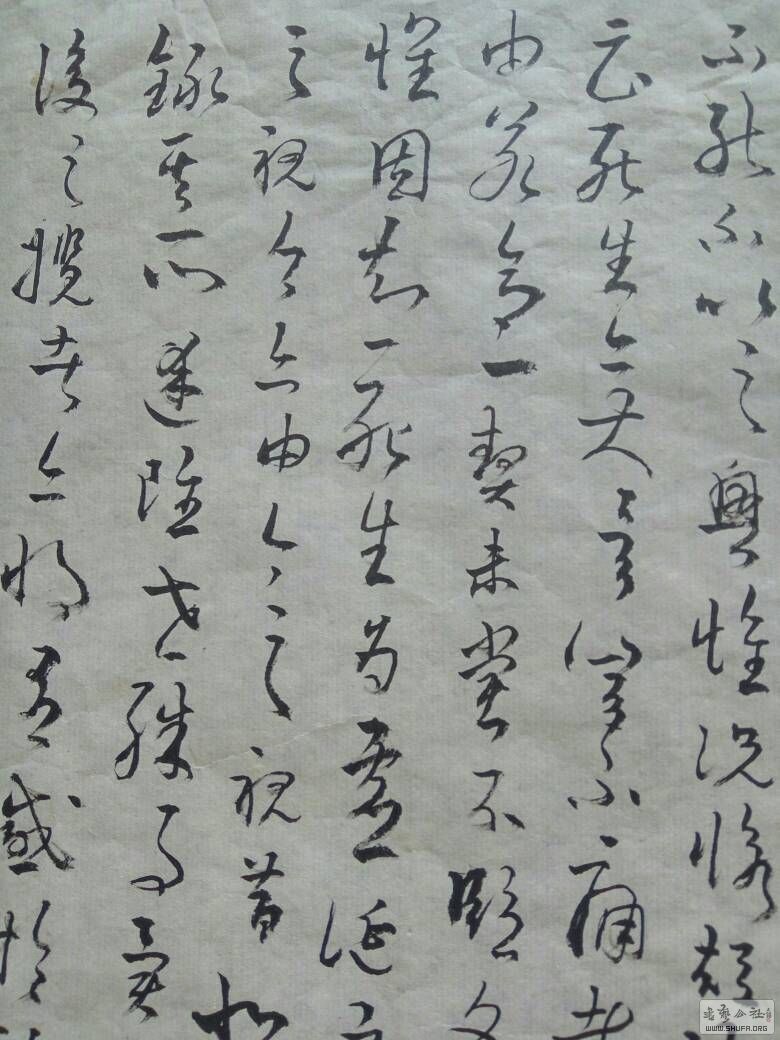 不能不以之興懷況脩短
云死生亦大矣豈不痛哉
由若合一契未嘗不臨文
懷固知一死生為虛誕
之視今亦由今之視昔
錄其所述雖世殊事異
後之攬者亦將有感於
书艺公社
WWW.SHUFA.ORG